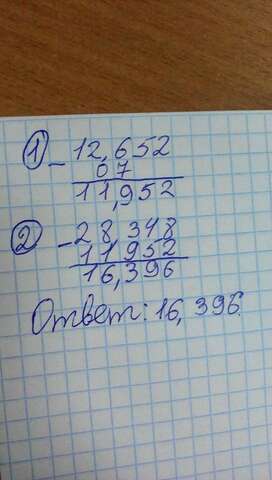 1 - 12,652
0 7
11,952
2 - 28 348
11952
16,396
Ответ: 16, 396